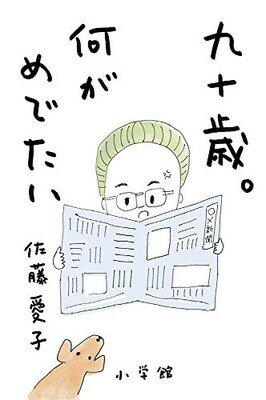 九十歳。
何が
めでたい
佐藤愛子
〇〇新聞
小学館